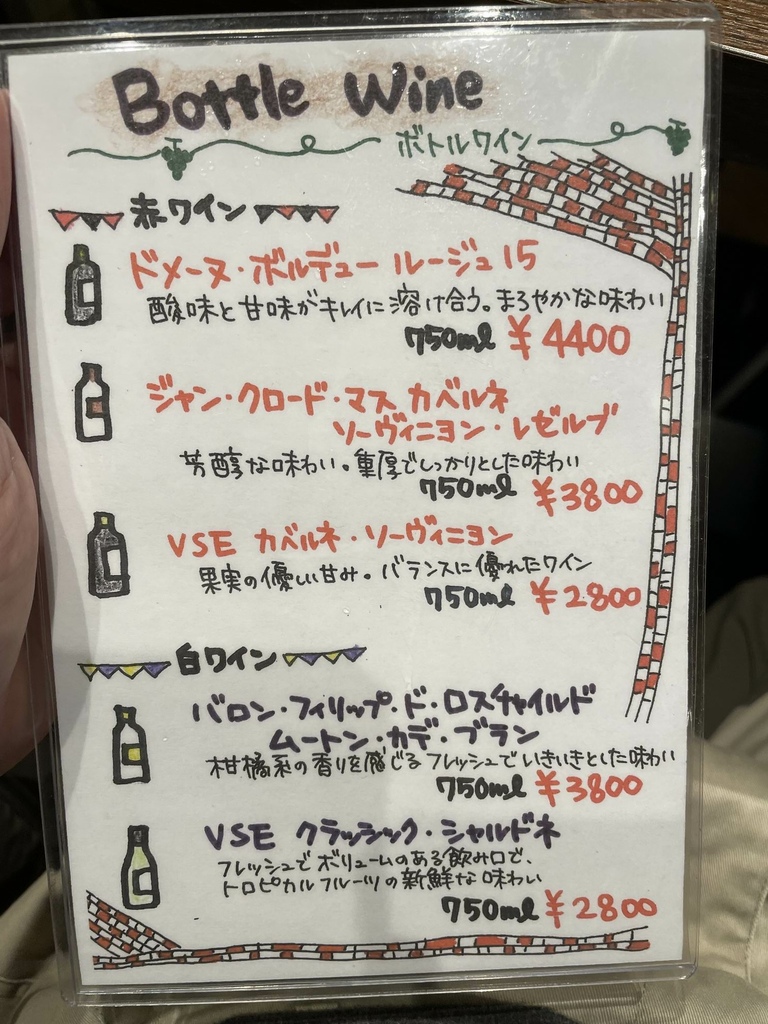 Bottle Wine
ボトルワイン
赤ワイン
ドメーヌ・ボルデュー ルージュ15
酸味と甘味がキレイに溶け合う。まろやかな味わい
750ml ¥4400
ジャン・クロード・マス カベルネ
ソーヴィニヨン・レゼルブ
芳醇な味わい。重厚でしっかりとした味わい
750ml ¥3800
VSE カベルネ・ソーヴィニヨン
果実の優しい甘み。バランスに優れたワイン
750ml ¥2800
白ワイン
バロン・フィリップ・ド・ロスチャイルド
ムートン・カデ・ブラン
柑橘系の香りを感じるフレッシュでいきいきとした味わい
750ml ¥3800
VSE クラッシック・シャルドネ
フレッシュでボリュームのある飲み口で、
トロピカルフルーツの新鮮な味わい
750ml ¥2800